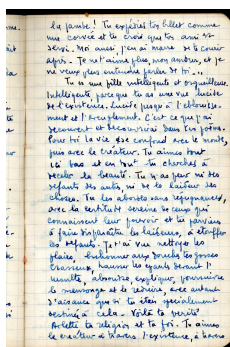 la jambe! Tu expédies ton billet comme
une corvée et tu crois que ton ami est
servi. Moi aussi, j'en ai marre de te courir
après. Je ne t'aime plus, mon amour, et je
ne veux plus entendre parler de toi...
Tu es une fille intelligente et orgueilleuse
Intelligente parce que tu as une vue lucide
de l'existence. Lucide jusqu'à l'éblouisse-
ment et l'aveuglement. C'est ce que j'ai
découvert et découvrirai dans tes poèmes.
Pour toi la vie se confond avec le monde,
puis avec le créateur. Tu aimes tout
ici bas et en tout tu cherches à
receler la beauté. Tu n'as peur ni des
défauts des autres, ni de la laideur des
choses. Tu les abordes sans répugnance,
avec la certitude sereine de ceux qui
connaissent leur pouvoir et tu parviens
à faire disparaître les laideurs, à étouffer
les défauts. Je t'ai vue nettoyer les
plaies, enfoncer aux bouches les gosses
crasseux, hausser les égarés devant l'
humilité, absoudre, expliquer, poursuivre
le mensonge et le réduire, avec autant
d'aisance que si tu étais spécialement
destinée à cela. Voilà ta vérité
Arlette ta religion et ta foi. Tu aimes
le créateur à travers l'existence, à travers